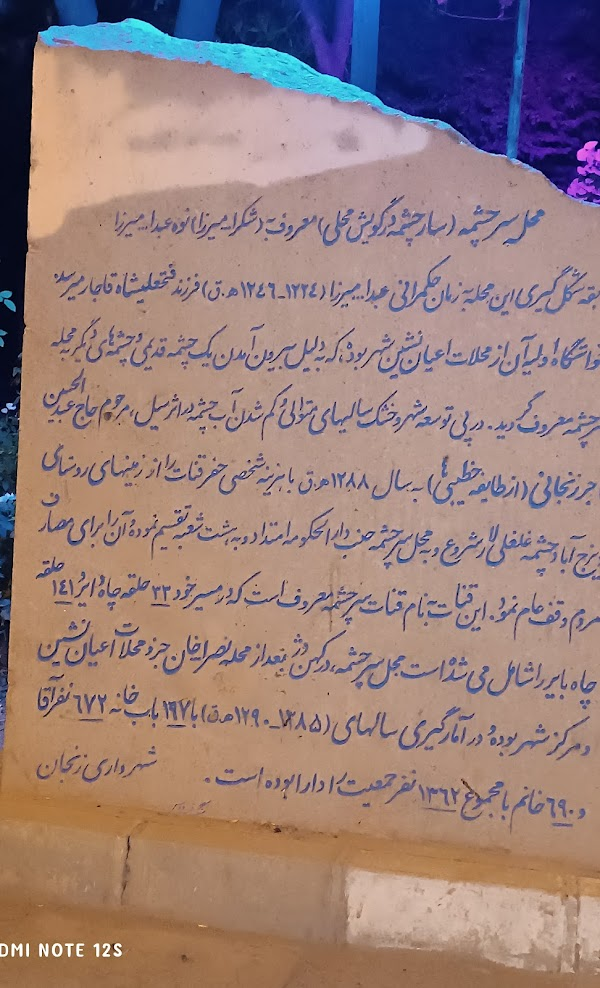 محل سرچشمه (سارچشمه در گویش محلی) معروف به (شکراله میرزا) نوه عبداله میرزا
شکل گیری این محله به زمان حکمرانی عبداله میرزا (۱۲۲۴-۱۲۴۶ ه.ق) فرزند فتحعلیشاه قاجار میرسد.
اولیه آن از محلات اعیان نشین شهر بوده، که به دلیل بیرون آمدن یک چشمه قدیمی و چشمه های دگر به محله
سرچشمه معروف گردید. در پی توسعه شهر و خشک سالیهای متوالی و کم شدن آب چشمه در اثر سیل، مرحوم حاج عبدالحسین
زنجانی (از طایفه خطیبی ها) به سال ۱۲۸۸ ه.ق با هزینه شخصی حفر قنات را از زمینهای روستای
و چشمه غلغلی لار شروع و به محل سرچشمه جنب دارالحکومه امتداد و به هشت شعبه تقسیم نموده و آن را برای مصارف
مردم وقف عام نمود. این قنات به نام قنات سرچشمه معروف است که در مسیر خود ۳۳ حلقه چاه دایر و ۱۴۱ حلقه
چاه بایر را شامل می شده است محل سرچشمه، در کهن دژ بعد از محله نصراله خان جزو محلات اعیان نشین
و مرکز شهر بوده و در آمارگیری سالهای (۱۲۸۵-۱۲۹۰ ه.ق) با ۱۹۷ باب خانه ۶۷۲ نفر آقا
و ۶۹۰ خانم با مجموع ۱۳۶۲ نفر جمعیت را دارا بوده است.
شهرداری زنجان
DMI NOTE 12S